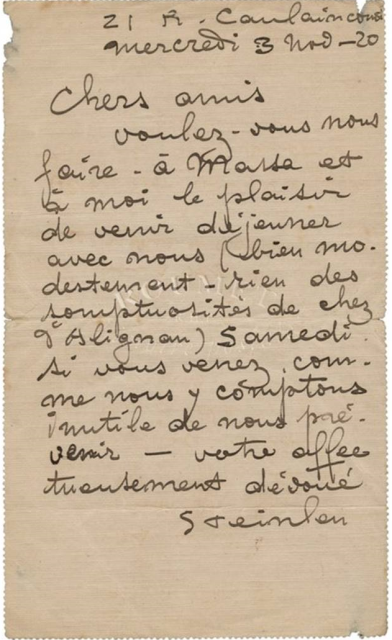 21 R. Caulaincourt
mercredi 3 Nov - 20
Chers amis
voulez-vous nous
faire - à Massa et
à moi le plaisir
de venir déjeuner
avec nous (bien mo-
destement - rien des
somptuosités de chez
d'Alignan) Samedi.
si vous venez, com-
me nous y comptons
inutile de nous pré-
venir - votre affec
tueusement dévoué
Steinlen